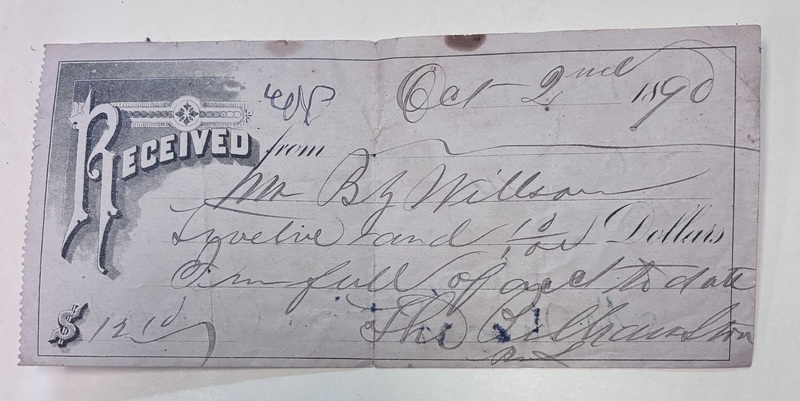 Oct 2nd 1890
RECEIVED from
Mr B Willson
Twelve and 10/100 Dollars
In full of acct to date
$ 12 10
The